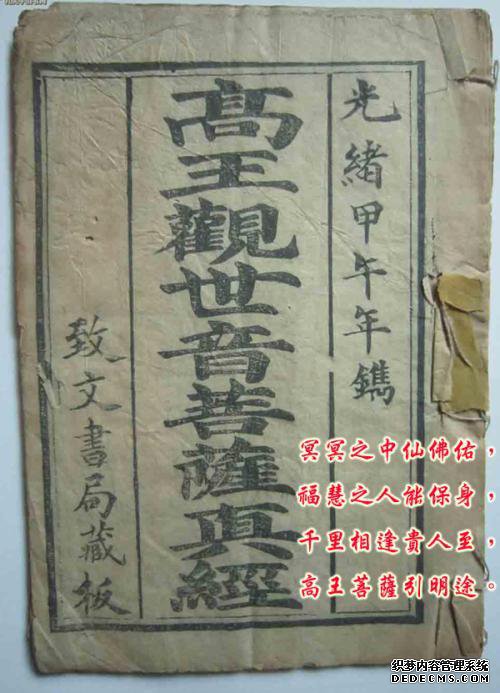 光緒甲午年鐫
高王觀世音菩薩真經
致文書局藏板
冥冥之中仙佛佑，
福慧之人能保身，
千里相逢貴人至，
高王菩薩引明途。
织梦内容管理系统
DEDECMS.COM